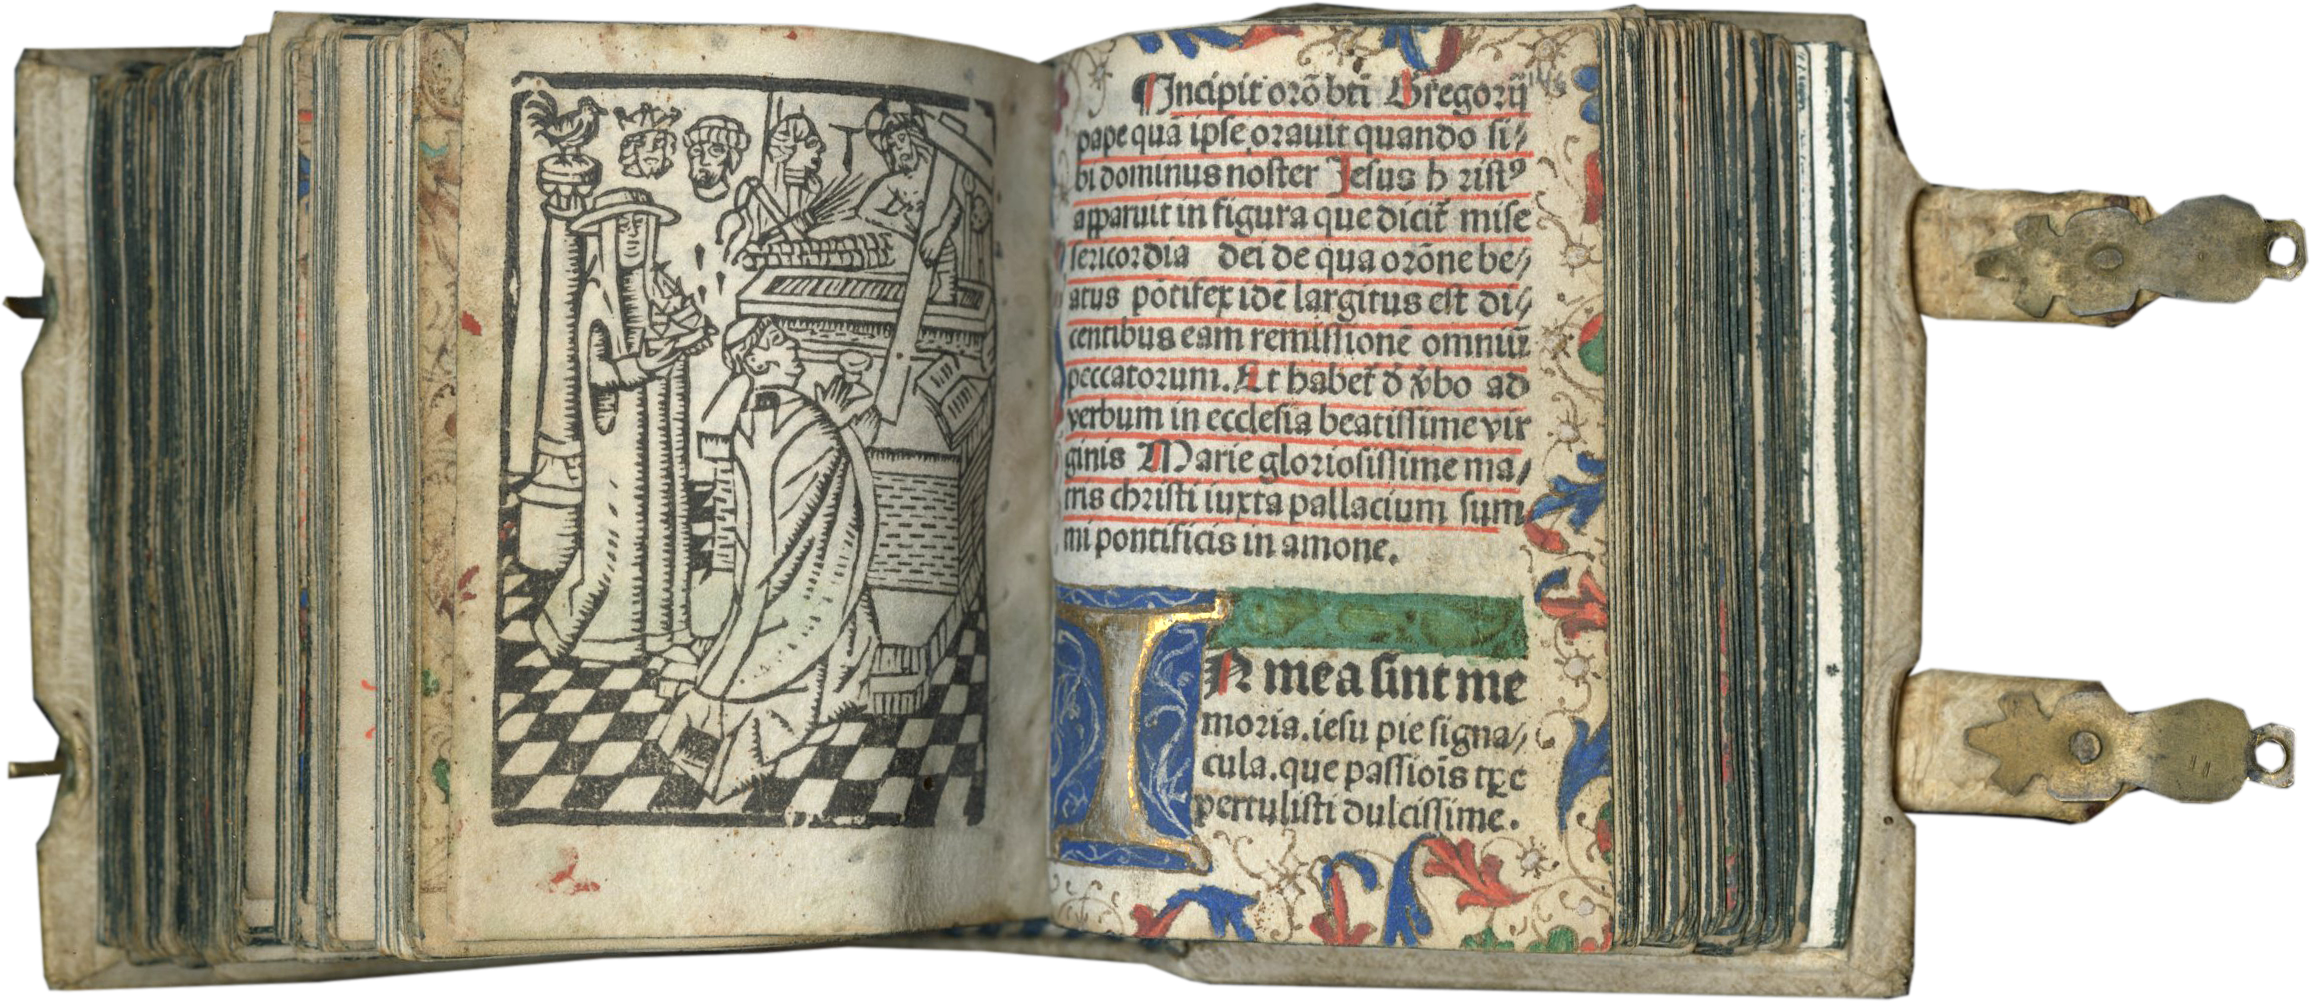 ¶Incipit orō bti Gregorij
pape quā ipse orauit quando si⸗
bi dominus noster Jesus h ristꝰ
apparuit in figura que dicit̄ mise
sericordia dei de qua orōne be⸗
atus pōtifex idē largitus est di⸗
centibus eam remissionē omniū
peccatorum. Et habet̄ d̄ v̄bo ad
verbum in ecclesia beatissime vir
ginis Marie gloriosissime ma⸗
tris christi iuxta pallacium sum
mi pontificis in amone.
IN mea sint me
moria. iesu pie signa⸗
cula. que passiōis tpe
pertulisti dulcissime.